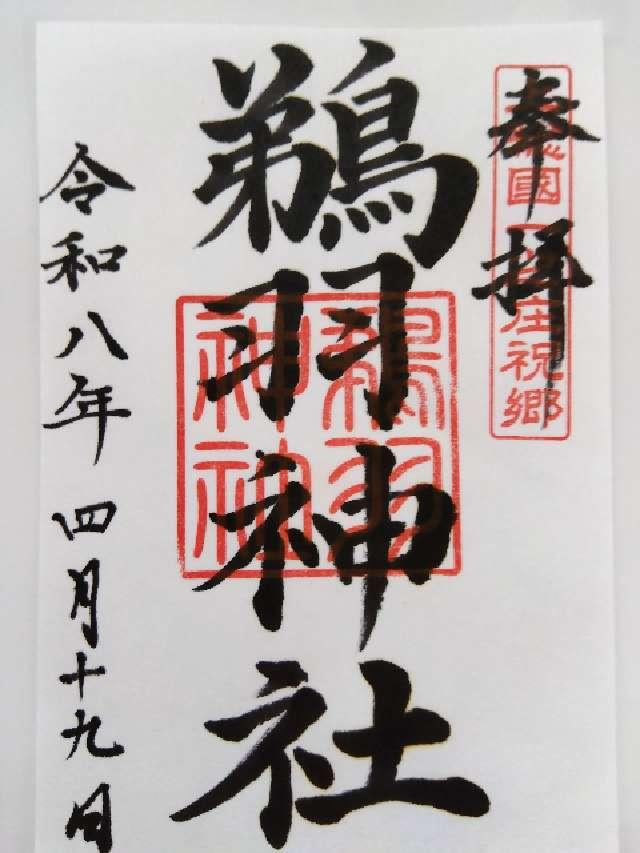 奉拝
國 庄祝郷
鵜羽神社
鵜羽神社
令和八年四月十九日